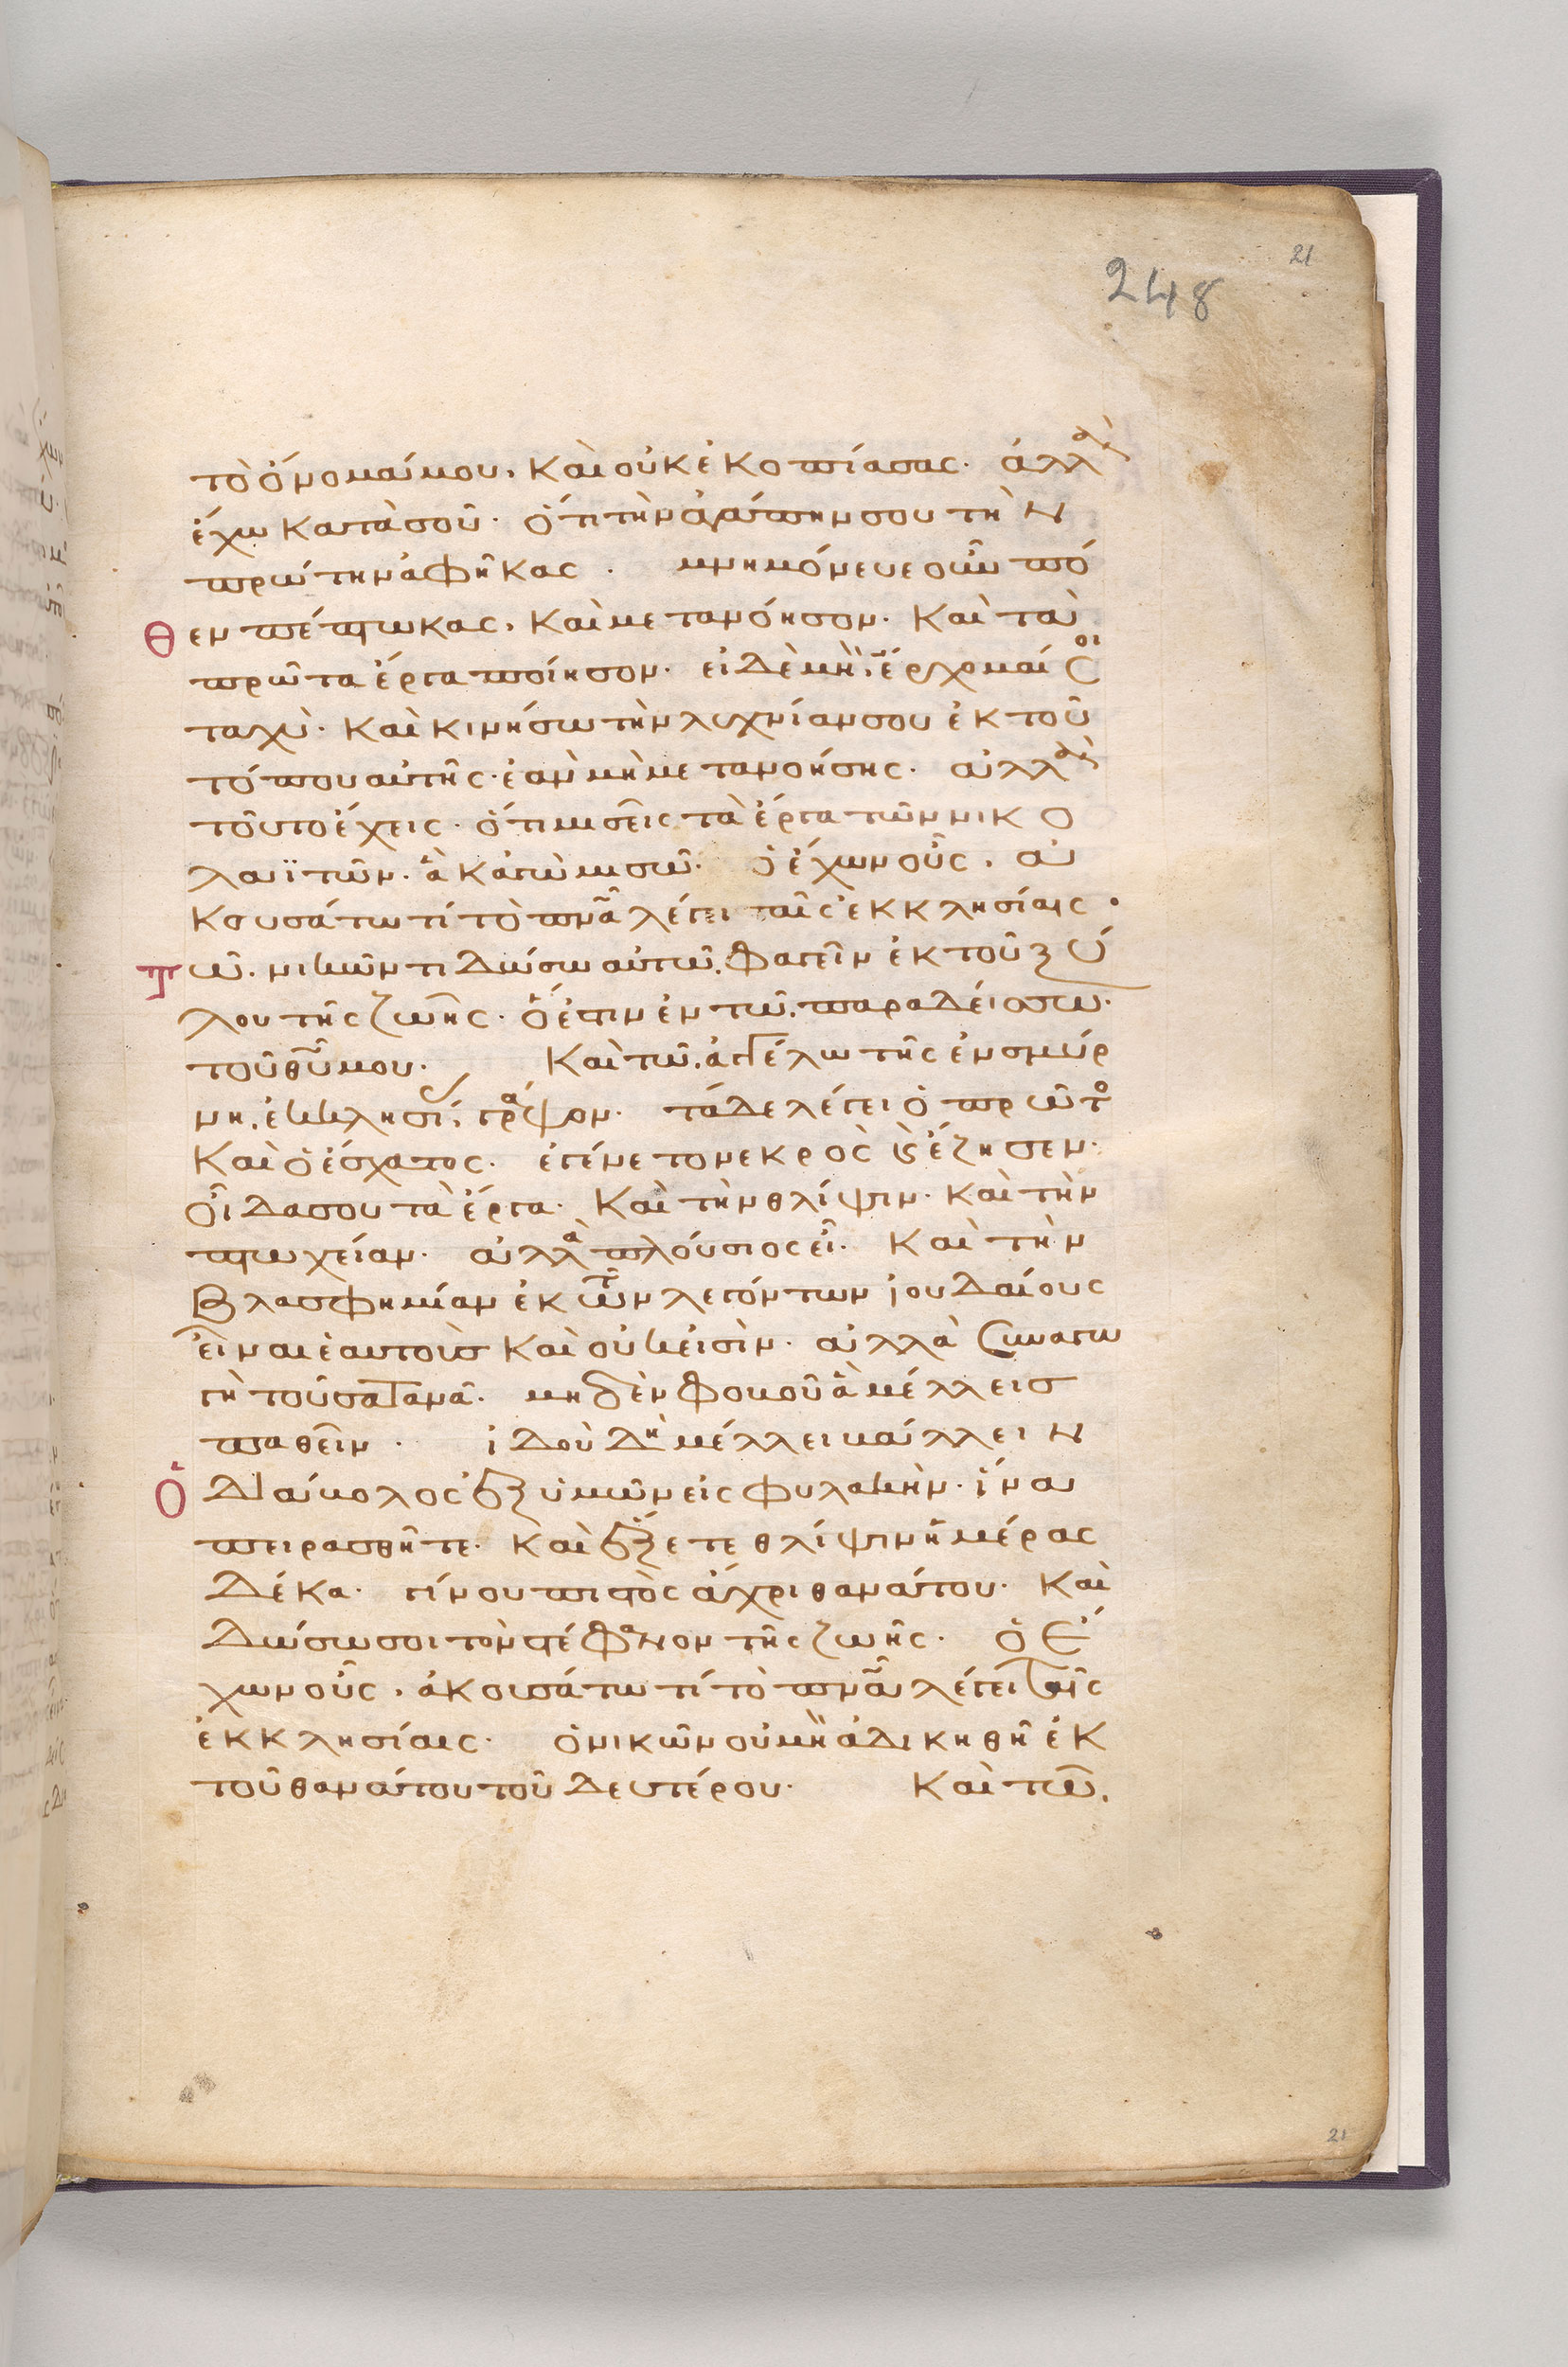 21
248
τὸ ὄνομά μου, καὶ οὐκ ἐκοπίασας· ἀλλὰ
ἔχω κατὰ σοῦ· ὅτι τὴν ἀγάπην σου τὴν
πρώτην ἀφῆκας· μνημόνευε οὖν πό
θεν πέπτωκας, καὶ μετανόησον· καὶ τὰ
πρῶτα ἔργα ποίησον· εἰ δὲ μὴ, ἔρχομαί σοι
ταχὺ· καὶ κινήσω τὴν λυχνίαν σου ἐκ τοῦ
τόπου αὐτῆς· ἐὰν μὴ μετανοήσης· ἀλλὰ
τοῦτο ἔχεις· ὅτι μισεῖς τὰ ἔργα τῶν νικο
λαϊτῶν· ἃ κἀγὼ μισῶ· ὁ ἔχων οὖς, ἀ
κουσάτω τί τὸ πνᾶ λέγει ταῖς ἐκκλησίαις·
τῶ. νικῶντι δώσω αὐτῶ. φαγεῖν ἐκ τοῦ ξύ
λου τῆς ζωῆς· ὅ ἐστιν ἐν τῶ. παραδείσω·
τοῦ θῦ μου· Καὶ τῶ. ἀγγέλω τῆς ἐν σμύρ
νη. ἐκκλησί, γράψον· τάδε λέγει ὁ πρῶτο
καὶ ὁ ἔσχατος· ἐγένετο νεκρὸς ϗ ἔζησεν·
οἶδα σου τὰ ἔργα· καὶ τὴν θλίψιν· καὶ τὴν
πτωχείαν· ἀλλὰ πλούσιος εἶ· καὶ τὴν
βλασφημίαν ἐκ τῶν λεγόντων ἰουδαίους
εἶναι ἑαυτοὺς καὶ οὐκ εἰσὶν· ἀλλὰ συναγω
γὴ τοῦ σατανᾶ· μηδὲν φοβοῦ ἃ μέλλεις
παθεῖν· ἰδοὺ δὴ μέλλει βάλλειν
ὁ διάβολος ἐξ ὑμῶν εἰς φυλακὴν· ἵνα
πειρασθῆτε· καὶ ἕξετε θλίψιν ἡμέρας
δέκα· γίνου πιστὸς ἄχρι θανάτου· καὶ
δώσω σοι τὸν στέφανον τῆς ζωῆς· ὁ ἔ
χων οὖς, ἀκουσάτω τί τὸ πνᾶ λέγει ταῖς
ἐκκλησίαις· ὁ νικῶν οὐ μὴ ἀδικηθῆ ἐκ
τοῦ θανάτου τοῦ δευτέρου· Καὶ τῶ.
21